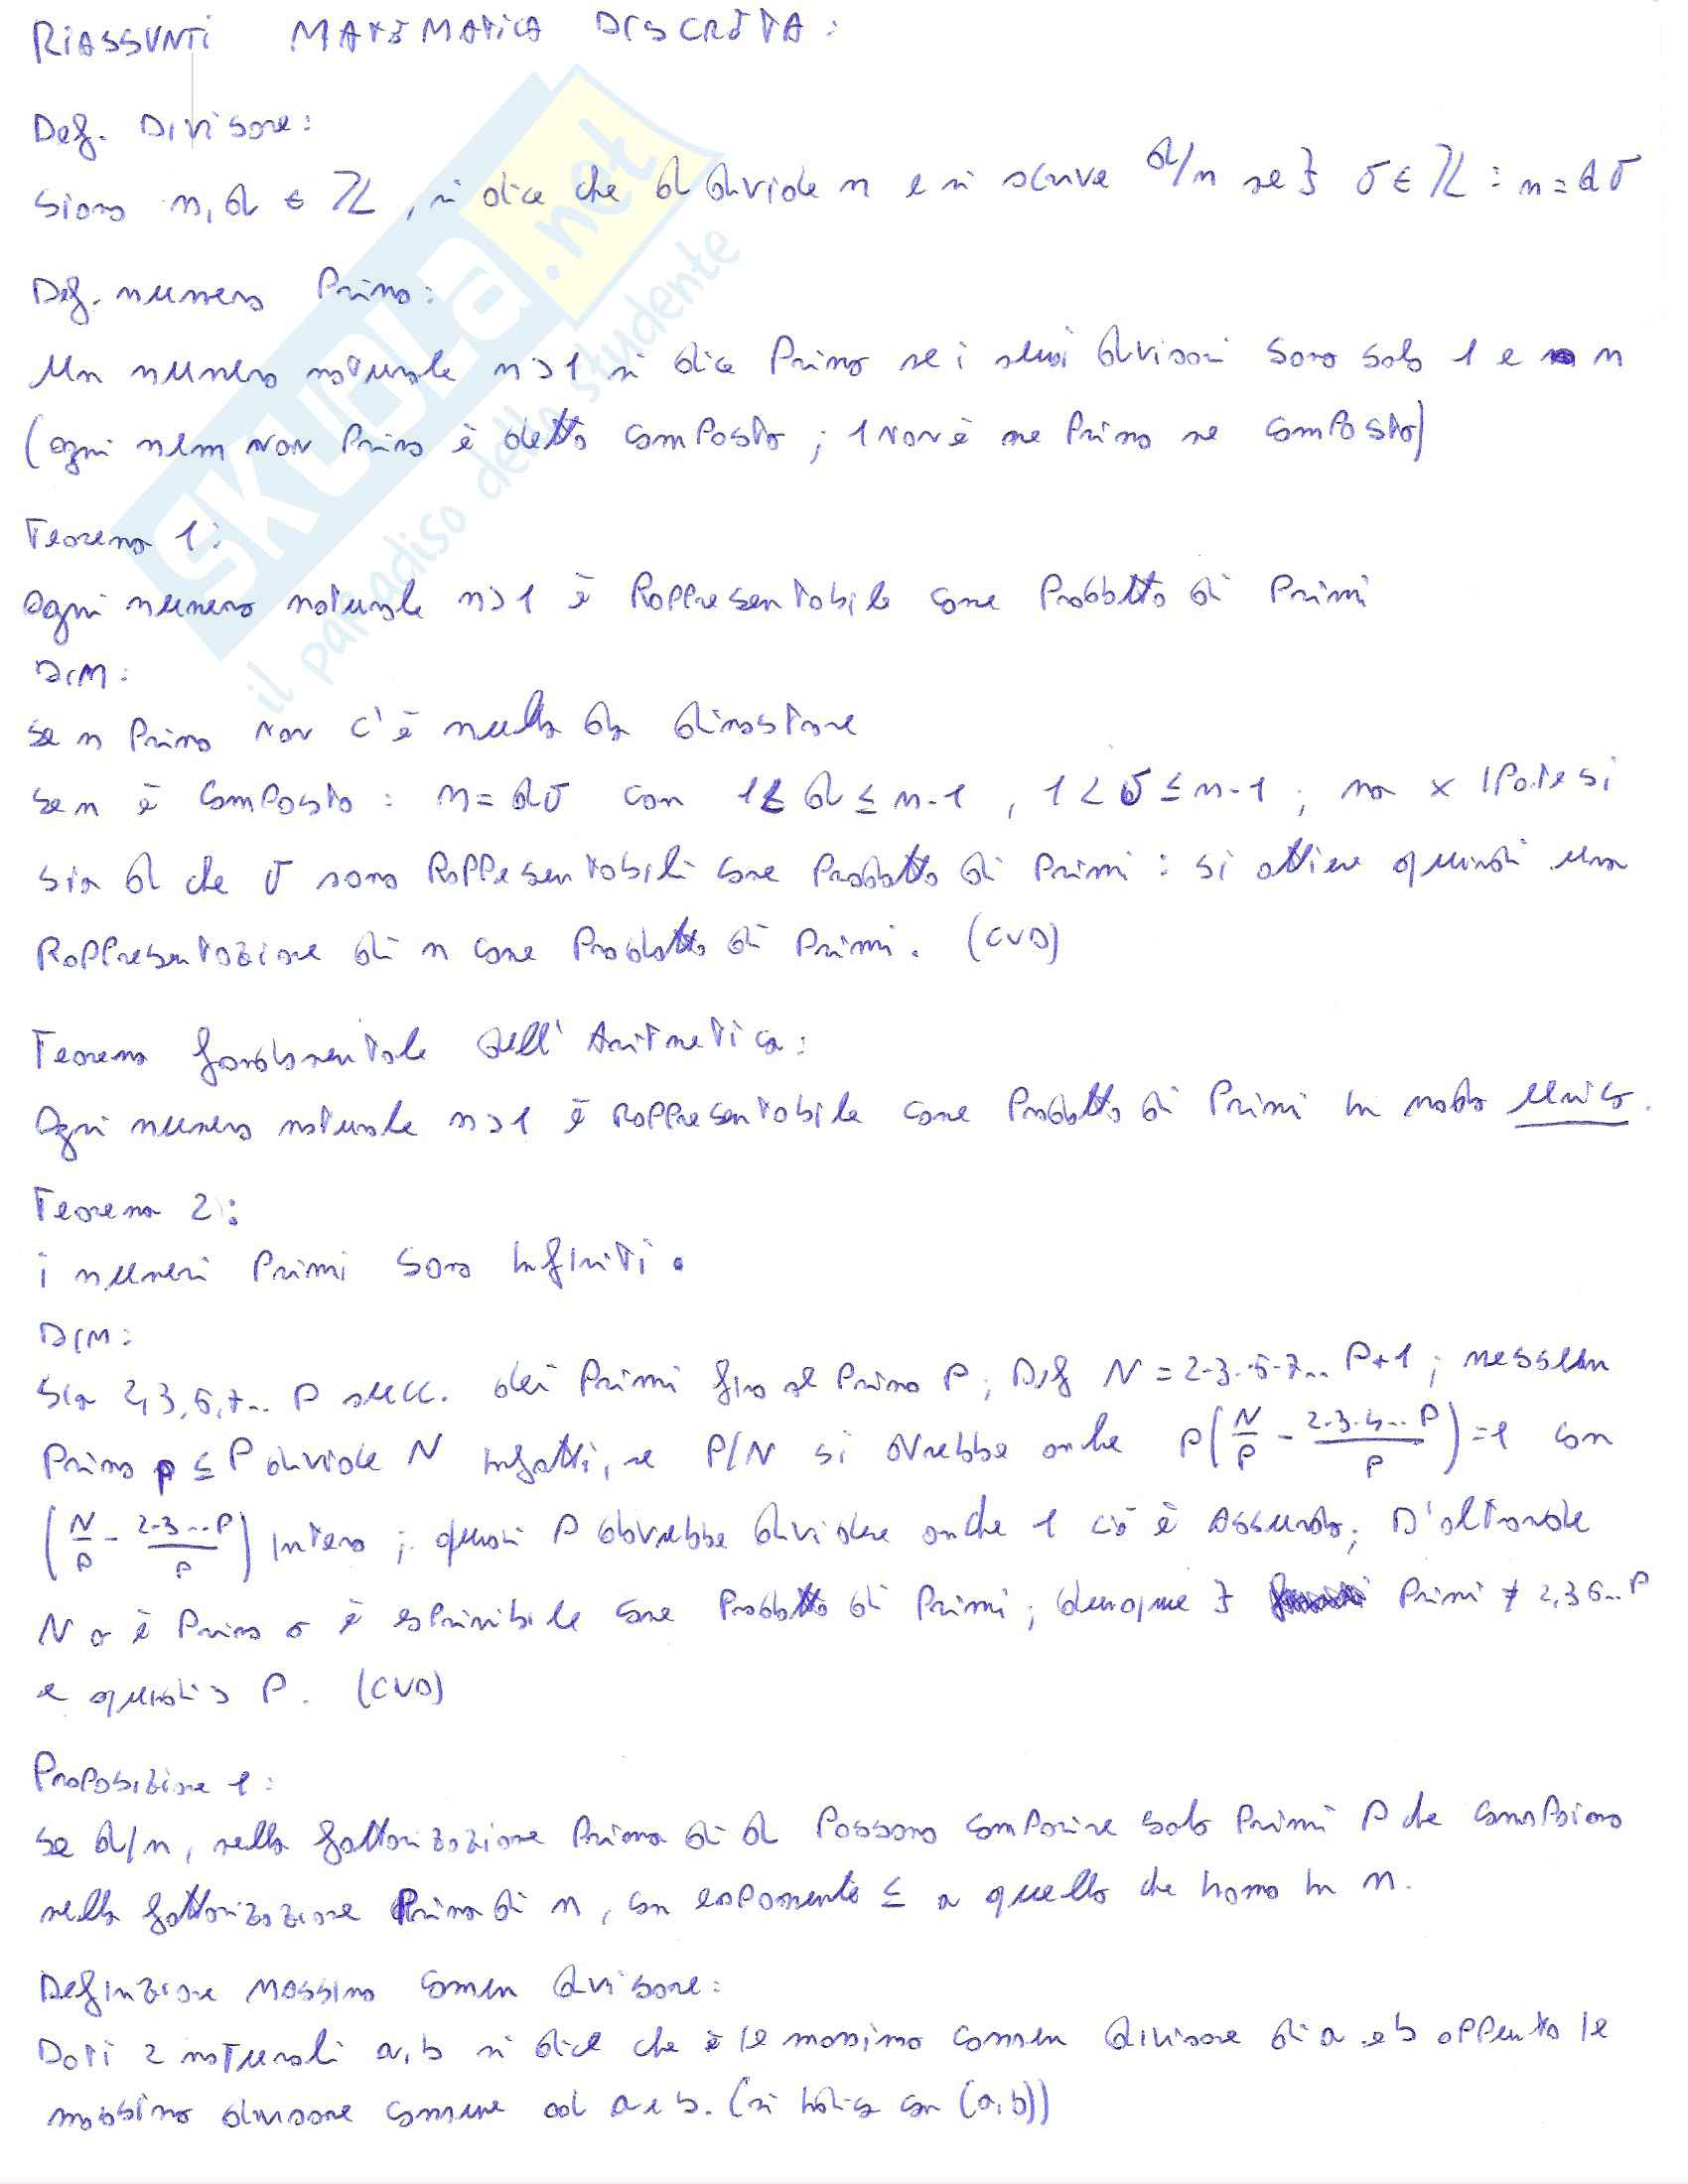 RIASSUNTI MATEMATICA DISCRETA:
Def. Divisore:
siano n, d ∈ ℤ, si dice che d divide n e si scrive d/n se ∃ δ ∈ ℤ : n = dδ
Def. numero Primo:
Un numero naturale n>1 si dice Primo se i suoi divisori sono solo 1 e n
(ogni num NON Primo è detto composto; 1 NON è ne Primo ne composto)
Teorema 1:
Ogni numero naturale n>1 è Rappresentabile come Prodotto di Primi
DIM:
se n Primo non c'è nulla da dimostrare
se n è composto: n = dδ con 1 < d ≤ n-1, 1 < δ ≤ n-1; ma x IPotesi
sia d che δ sono Rappresentabili come Prodotto di Primi: si ottiene quindi una
Rappresentazione di n come Prodotto di Primi. (CVD)
Teorema fondamentale dell'Aritmetica:
Ogni numero naturale n>1 è rappresentabile come Prodotto di Primi in modo unico.
Teorema 2:
i numeri Primi sono infiniti.
DIM:
Sia 2,3,5,7.. P succ. dei Primi fino al Primo P; Def N = 2·3·5·7.. P+1; nessun
Primo p ≤ P divide N infatti, se P/N si avrebbe anche p(N/p - 2·3·5...P/p) = 1 con
(N/p - 2·3...P/p) intero; quindi p dovrebbe dividere anche 1 ciò è Assurdo; D'altronde
N o è Primo o è esprimibile come Prodotto di Primi; dunque ∃ Primi ≠ 2,3,5..P
e quindi > P. (CVD)
Proposizione 1:
se d/n, nella fattorizzazione Prima di d Possono comparire solo Primi P che compaiono
nella fattorizzazione Prima di n, con esponente ≤ a quello che hanno in n.
Definizione Massimo comun divisore:
Dati 2 naturali a,b si dice che è il massimo comun divisore di a e b appunto il
massimo divisore comune ad a e b. (si indica con (a,b))
SKUOLA.net
il paradiso dello studente